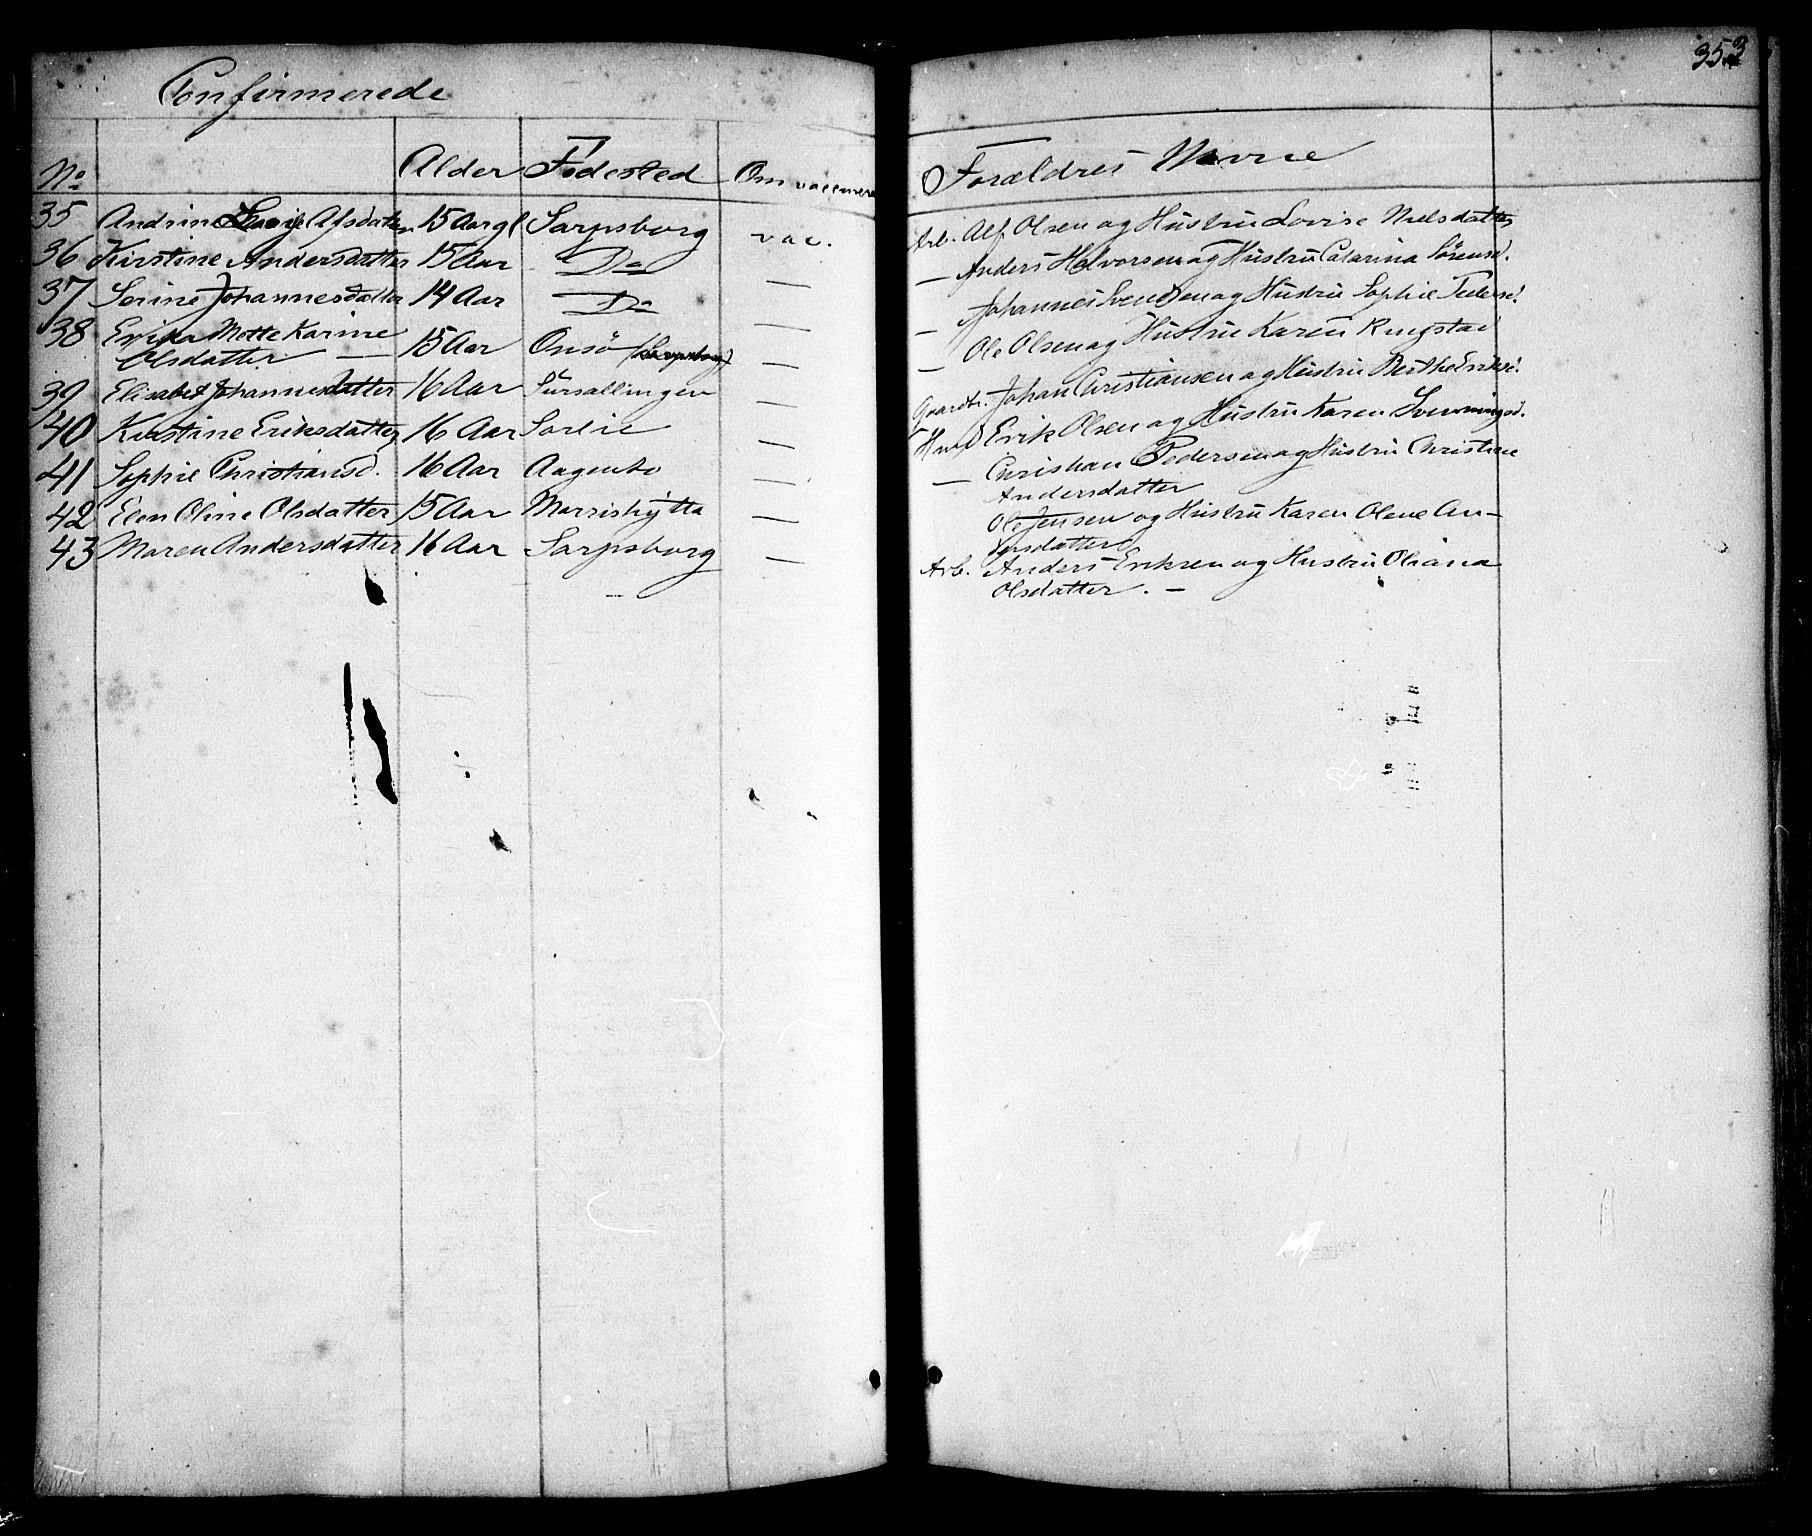 353
Confirmerede
No Alder Fødested Om vaccinere
35 Andrine Lovise Alfsdatter 15 Aar gl Sarpsborg vac.
36 Kirstine Andersdatter 15 Aar Do —
37 Serine Johannesdatter 14 Aar Do —
38 Erika Mette Karine
Olsdatter — 15 Aar Onsø (Sarpsborg) —
39 Elisabet Johannesdatter 16 Aar —
40 Kirstine Eriksdatter 16 Aar Sorlie —
41 Sophie Christiansd. 16 Aar Aagenbo —
42 Elen Oline Olsdatter 15 Aar —
43 Maren Andersdatter 16 Aar Sarpsborg —
Forældres Navne
Arb. Alf Olsen og Hustru Lovise Nielsdatter
— Anders Halvorsen og Hustru Catarina Sörensd.
— Johannes Svendsen og Hustru Sophie Pedersd.
— Ole Olsen og Hustru Karen Ringstad
Gaardbr. Johan Christiansen og Hustru Berthe Eriksd.
Hmd Erik Olsen og Hustru Karen Svenningsd.
— Christian Pedersen og Hustru Christine
Andersdatter
Ole Jensen og Hustru Karen Olene An-
dersdatter
Arb. Anders Eriksen og Hustru Oliana
Olsdatter. —